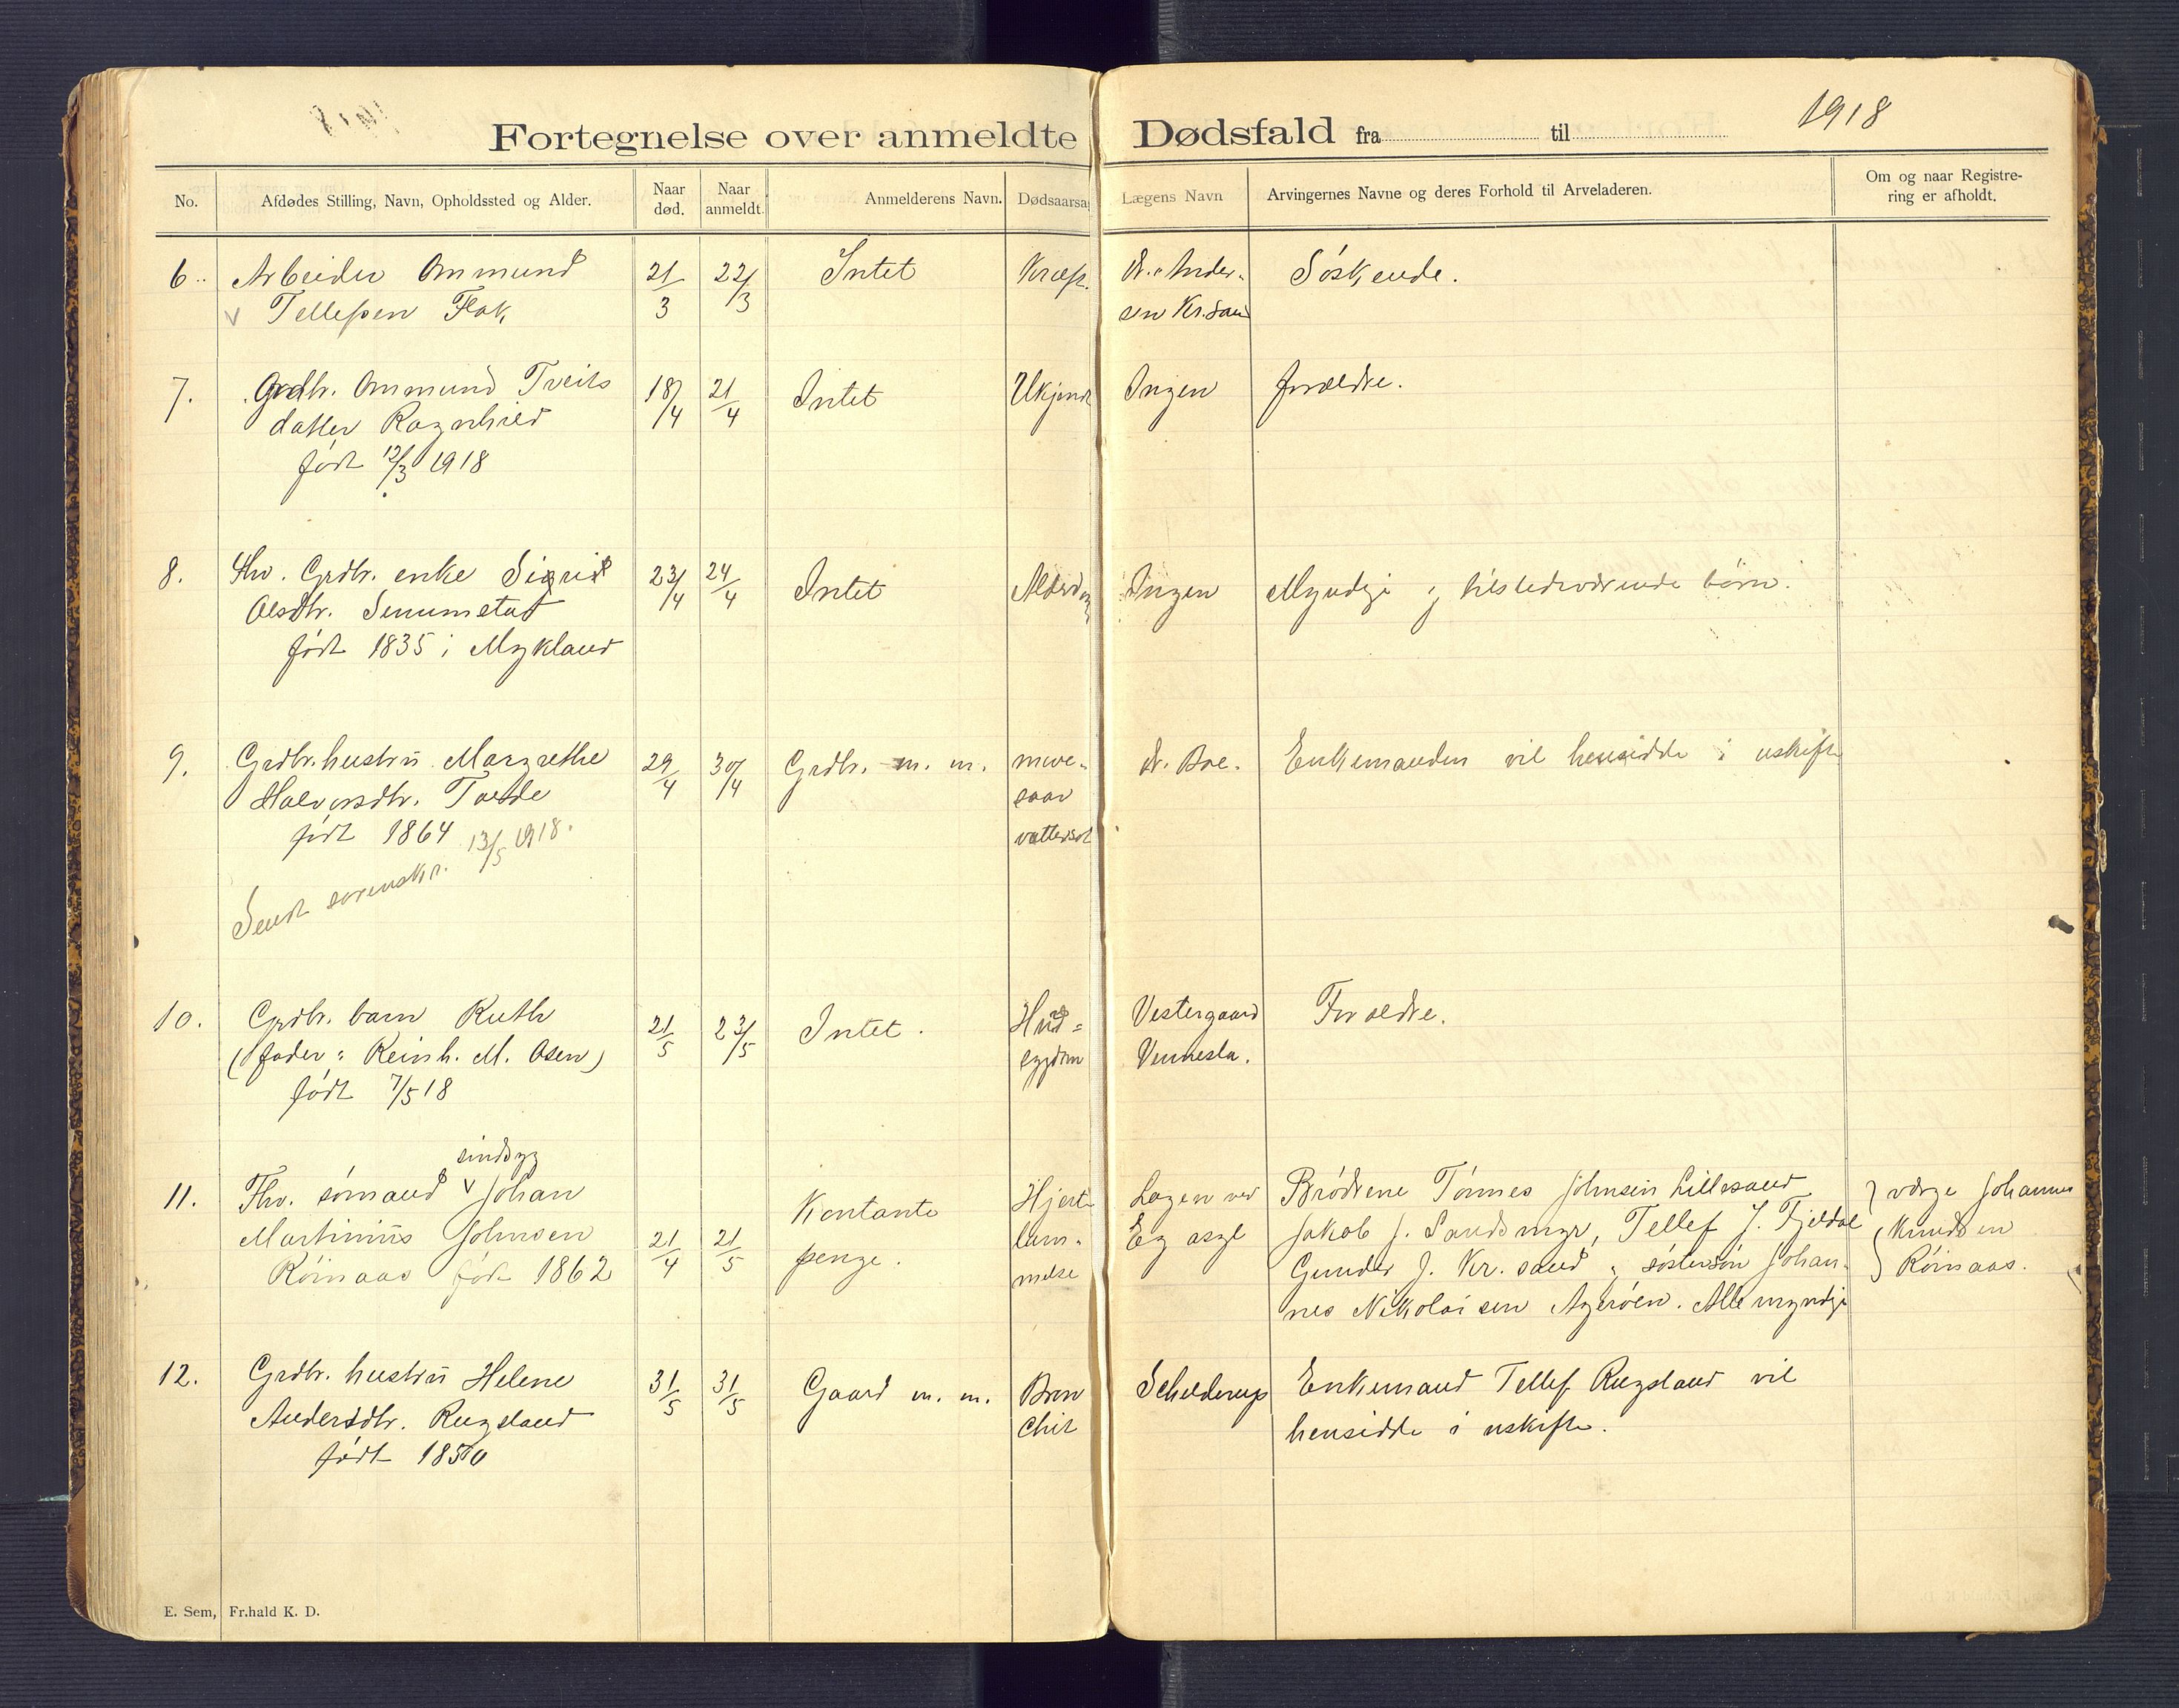 1918
Fortegnelse over anmeldte Dødsfald fra til
No. Afdødes Stilling, Navn, Opholdssted og Alder. Naar død. Naar anmeldt. Anmelderens Navn. Dødsaarsa Lægens Navn Arvingernes Navne og deres Forhold til Arveladeren. Om og naar Registrering er afholdt.
6. Arbeider Ommund 21/3 22/3 Intet Kræft. Dr. Ander-
v Tellefsen Flak sen Kr.san Søskende.
7. Grdbr. Ommund Treits 18/4 21/4 Intet Ukjendt Ingen forældre.
datter Ragnhild
født 12/3 1918
8. Fhv. Grdbr. enke Sigrid 23/4 24/4 Intet Alderdom Ingen Myndige og tilstedeværende børn.
Olsdtr. Senumstad
født 1835 i Mykland
9. Grdbr. hustru Margrethe 29/4 30/4 Grdbr. m. m. mave- Dr. Boe. Enkemanden vil hensidde i uskifte
Halvorsdtr. Tveide saar
født 1864 vattersot
Sendt sorenskr. 13/5 1918.
10. Grdbr. barn Ruth 21/5 23/5 Intet. Hud- Vestergaard Forældre.
(fader: Reinh. M. Osen) sygdom Vennesla.
født 7/5 18
sindsyg
11. Fhv. sømand v Johan Kontante Hjerte Lægen ved Brødrene Tønnes Johnsen Lillesand værge Johannes
Martinius Johnsen 21/4 21/5 penge. lam- Eg asyl Jakob J. Sandsmyr, Tellef J. Fjeldal Knudsen
Røinaas født 1862 melse Gunder J. Kr.sand, og søstersøn Johan- Røinaas.
nes Nikolaisen Agerøen. Alle myndige
12. Grdbr. hustru Helene 31/5 31/5 Gaard m. m. Bron Schelderup Enkemand Tellef Rugsland vil
Andersdtr. Rugsland chit hensidde i uskifte.
født 1850
E. Sem, Fr.hald K. D.